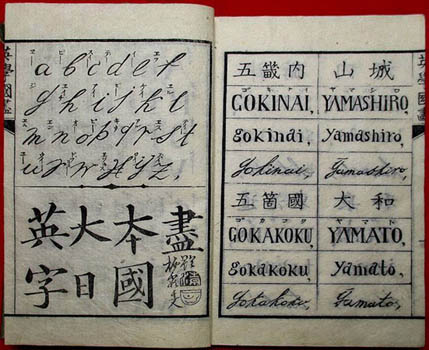 a b c d e f
g h i j k l
m n o p q r s t
u v w x y z,
英字
大日
本國
盡
五畿内 山城
GOKINAI, YAMASHIRO,
gokinai, yamashiro,
Gokinai, Yamashiro,
五箇國 大和
GOKAKOKU, YAMATO,
gokakoku, yamato,
Gokakoku, Yamato,